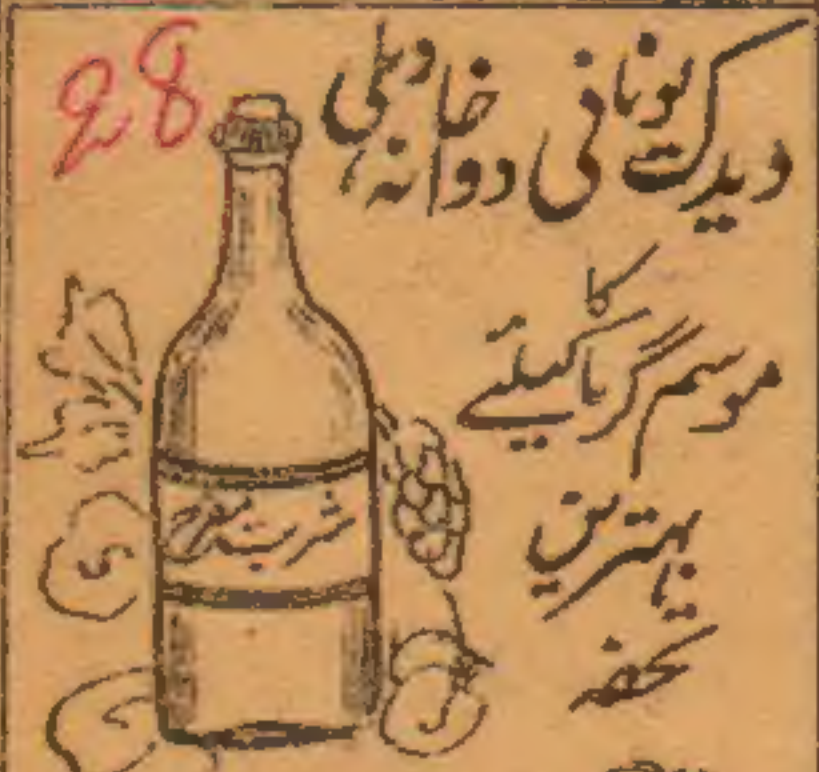 ویدک یونانی دواخانہ دہلی
کا
موسم گرما کیلئے
بہترین
تحفہ
شربت مفرح